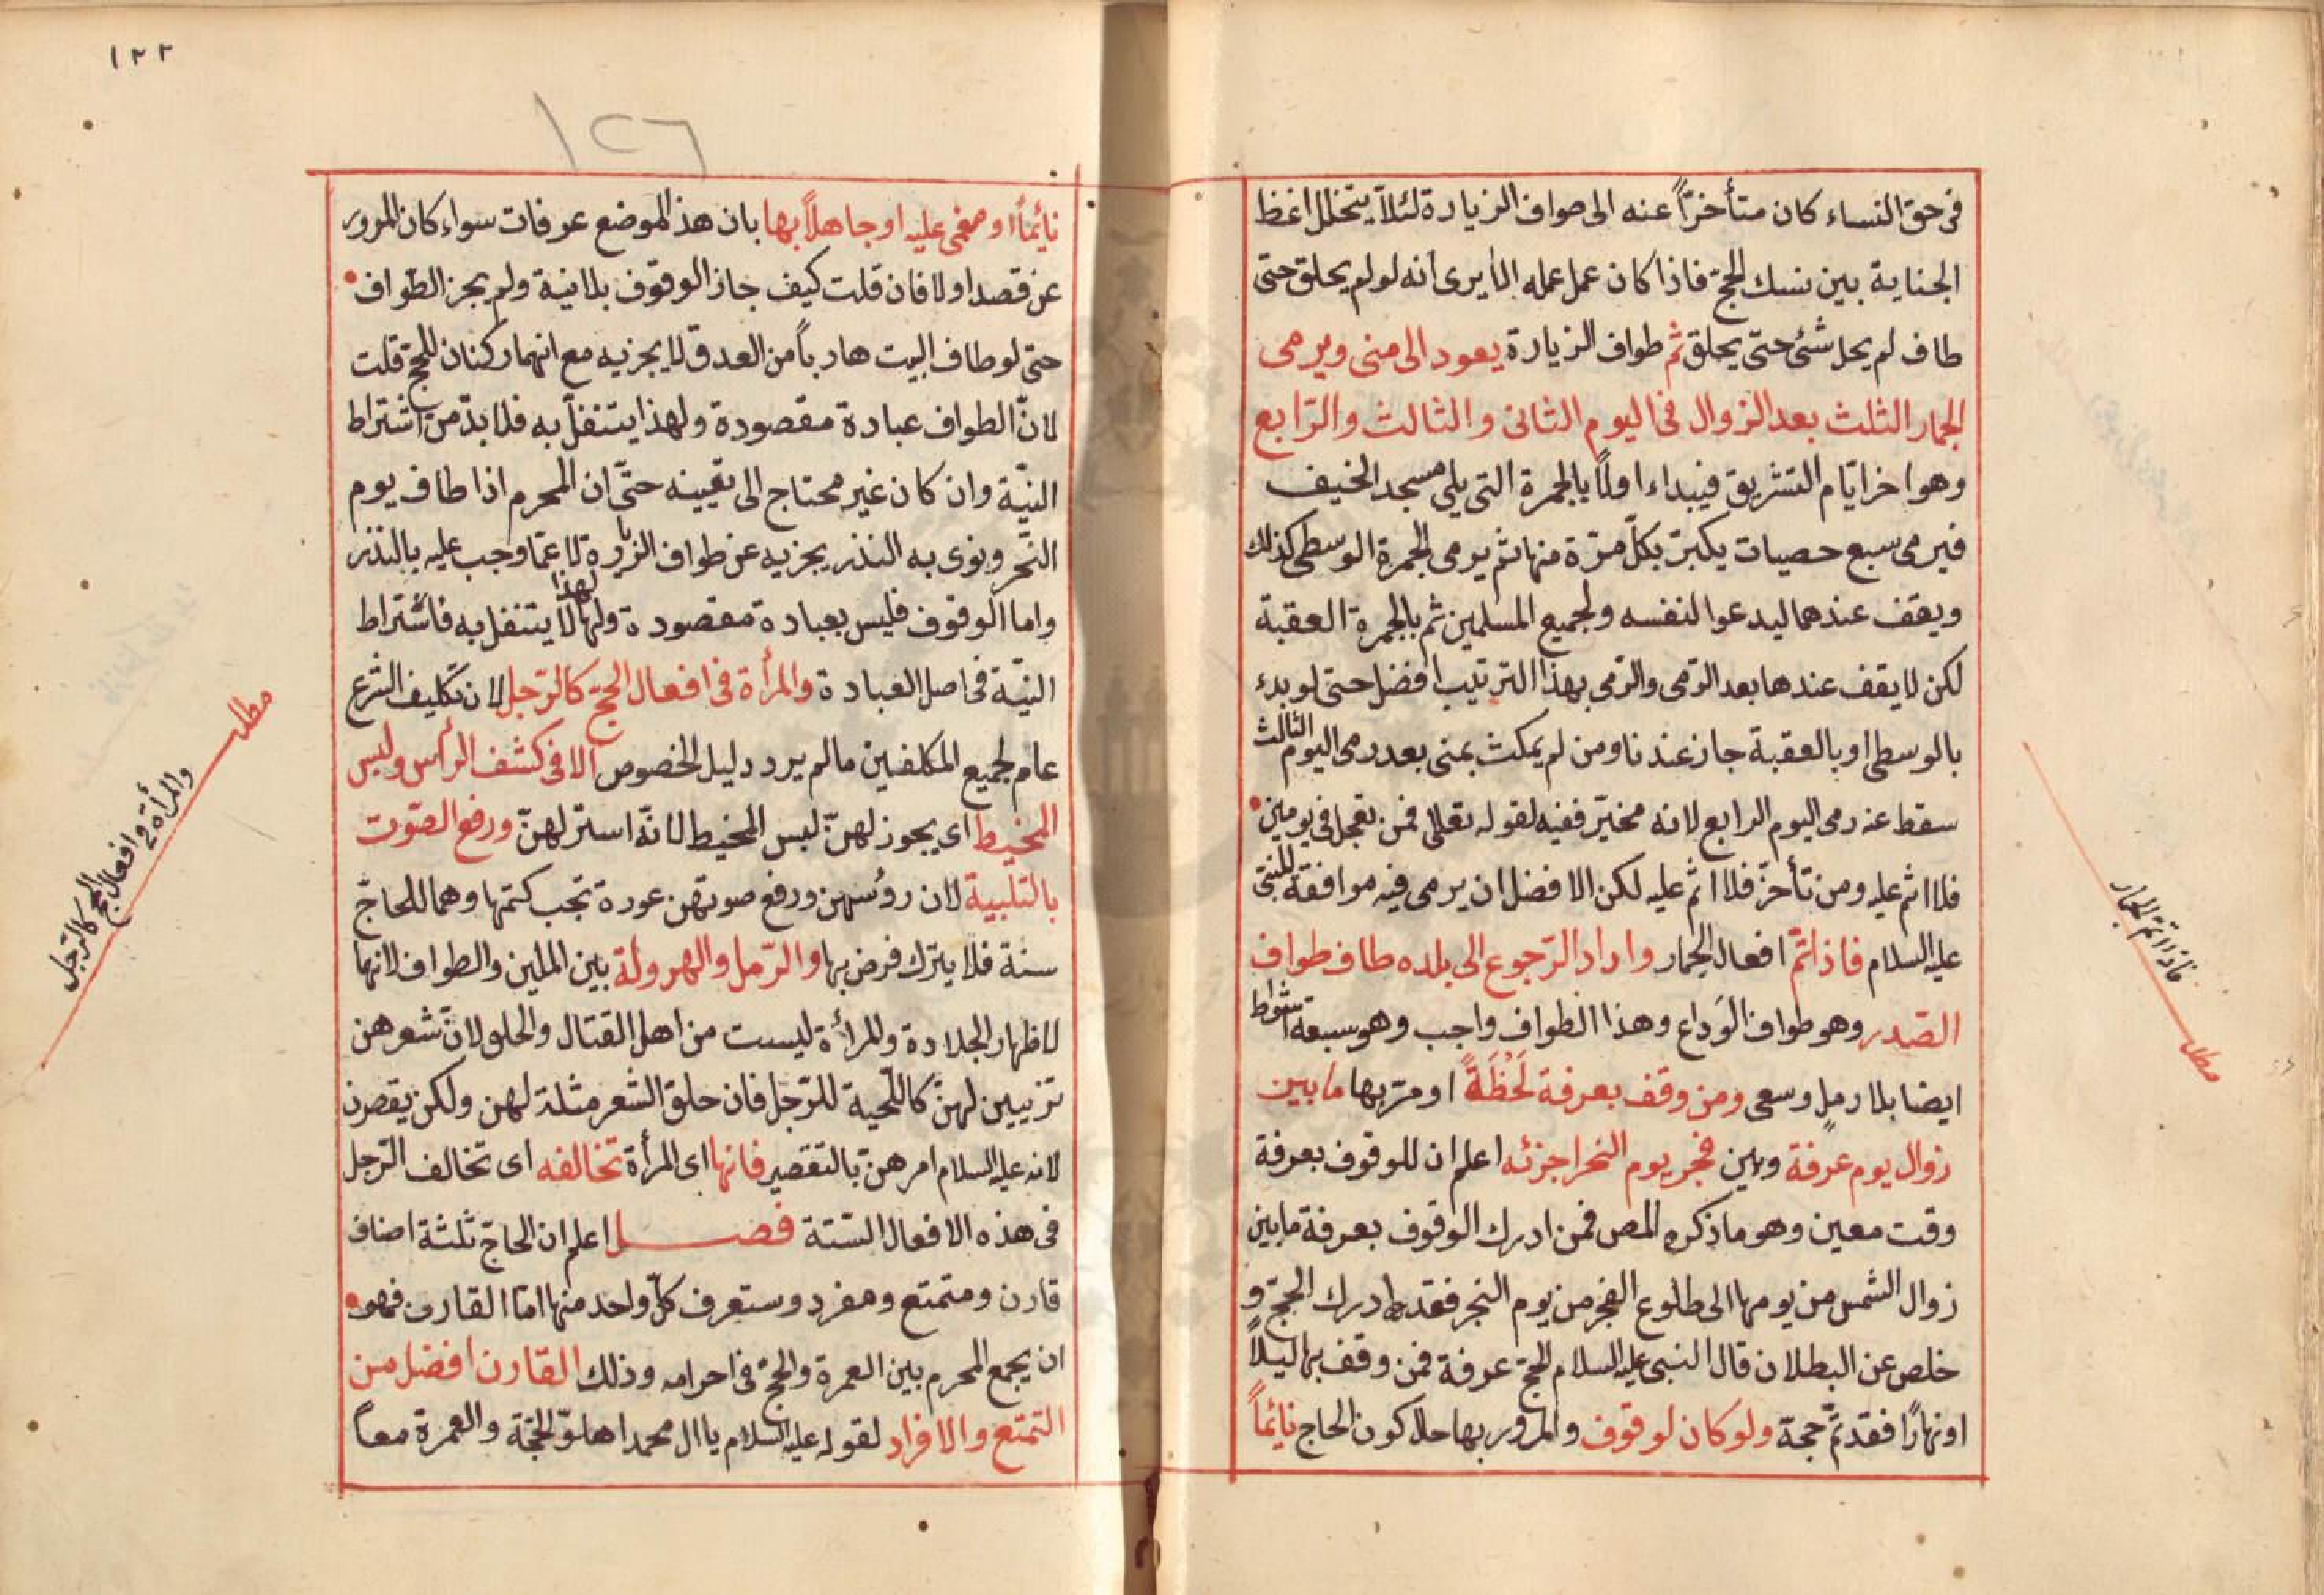 فى حق النساء كان متأخرّاً عنه الى طواف الزيارة لئلاّ يتخلل اغظ
الجناية بين نسك الحجّ فاذا كان عمل عمله الا يرى انه لو لم يحلق حتى
طاف لم يحل شئ حتى يحلق ثم طواف الزيارة يعود الى منى ويرمى
الجمار الثلث بعد الزوال فى اليوم الثانى والثالث والرّابع
وهو اخر ايّام التشريق فيبداء اولاً بالجمرة التى يلى مسجد الخيف
فيرمى سبع حصيات يكبرّ بكلّ مرّة منها ثم يرمى الجمرة الوسطى كذلك
ويقف عندهما ليدعوا لنفسه ولجميع المسلمين ثم بالجمرة العقبة
لكن لا يقف عندها بعد الرّمى والرّمى بهذا الترتيب افضل حتى لو بدء
بالوسطى او بالعقبة جاز عندنا ومن لم يمكث بمنى بعد رمى اليوم الثالث
سقط عنه رمى اليوم الرابع لانه مخيّر ففيه لقوله تعالى فمن تعجل فى يومين
فلا اثم عليه ومن تأخرّ فلا اثم عليه لكن الافضل ان يرمى فيه موافقة للنبىّ
عليه السلام فاذا تمّ افعال الجمار واراد الرّجوع الى بلده طاف طواف
الصّدر وهو طواف الوَداع وهذا الطواف واجب وهو سبعة اشواط
ايضا بلا رمل وسعى ومن وقف بعرفة لَحْظَةً او مرّ بها ما بين
زوال يوم عرفة وبين فجر يوم النحر اجزئه اعلم ان للوقوف بعرفة
وقت معين وهو ما ذكره المص فمن ادرك الوقوف بعرفة ما بين
زوال الشمس من يومها الى طلوع الفجر من يوم النحر فقد ادرك الحجّ و
خلص عن البطلان قال النبى عليه السلام الحجّ عرفة فمن وقف بها ليلاً
او نهارًا فقد تمّ حجة ولو كان لوقوف والمرور بها حال كون الحاج نائماً
فاذا تمّ الجمار
مطلب
١٢٢
١٢٦
نائماً او مغمى عليه او جاهلاً بها بان هذ الموضع عرفات سواء كان المرور
عن قصد او لا فان قلت كيف جاز الوقوف بلا نية ولم يجز الطواف
حتى لو طاف البيت هارباً من العدو لا يجزيه مع انهما ركنان للحجّ قلت
لانّ الطواف عبادة مقصودة ولهذا يتنفلّ به فلا بدّ من اشتراط
النيّة وان كان غير محتاج الى تعيينه حتّى ان المحرم اذا طاف يوم
النّحر ونوى به النذر يجزيه عن طواف الزيارة لا عمّا وجب عليه بالنذر
واما الوقوف فليس بعبادة مقصودة ولهذا لا يتنفل به فاشتراط
النيّة فى اصل العبادة والمرأة فى افعال الحجّ كالرّجل لان تكليف الشرع
عام لجميع المكلفين ما لم يرد دليل الخصوص الا فى كشف الرأس ولبس
المخيط اى يجوز لهنّ لبس المخيط لانّه استر لهنّ ورفع الصّوت
بالتلّبية لان رؤسهن ورفع صوتهن عورة تجب كتمها وهما للحاجّ
سنة فلا يترك فرض بها والرّمل والهرولة بين الملين والطواف لانهما
لاظهار الجلادة والمرأة ليست من اهل القتال والحلق لانّ شعرهن
تزيين لهنّ كاللّحية للرّجل فان حلق الشعر مثلة لهن ولكن يقصرن
لانه عليه السلام امر هنّ بالتقصير فانها اى المرأة تخالفه اى تخالف الرّجل
فى هذه الافعال الستة فصل اعلم ان الحاجّ ثلثة اصناف
قارن ومتمتع ومفرد وستعرف كلّ واحد منها امّا القارن فهو
ان يجمع المحرم بين العمرة والحجّ فى احرامه وذلك القارن افضل من
التمتع والافراد لقوله عليه السلام يا ال محمد اهلوّا بحجّة والعمرة معاً
مطلب
والمرأة فى افعال الحج كالرّجل